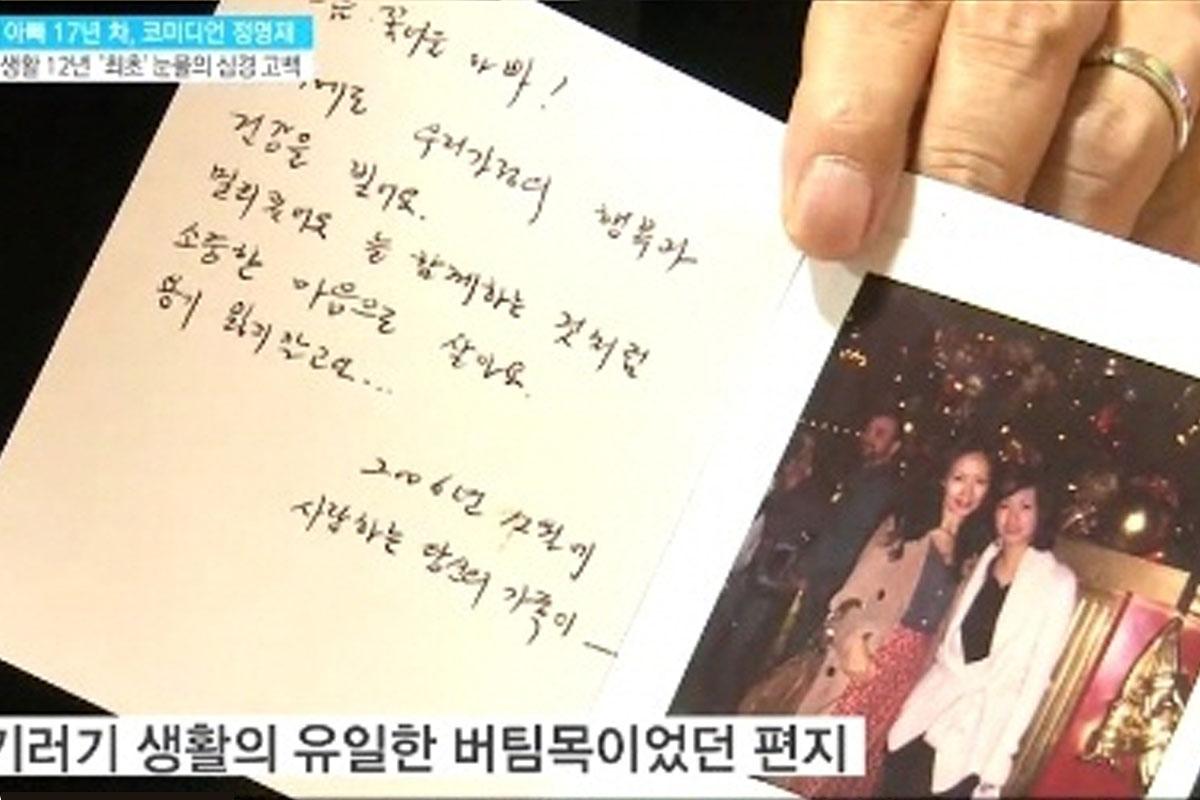 아빠 17년 차, 코미디언 정명재
생활 12년 '최초' 눈물의 심경 고백
아빠!
우리가정의 행복과
건강을 빌어요.
멀리 있어도 늘 함께하는 것처럼
소중한 마음으로 살아요.
용기 잃지 말고요...
2006년 12월에
사랑하는 당신의 가족이
기러기 생활의 유일한 버팀목이었던 편지